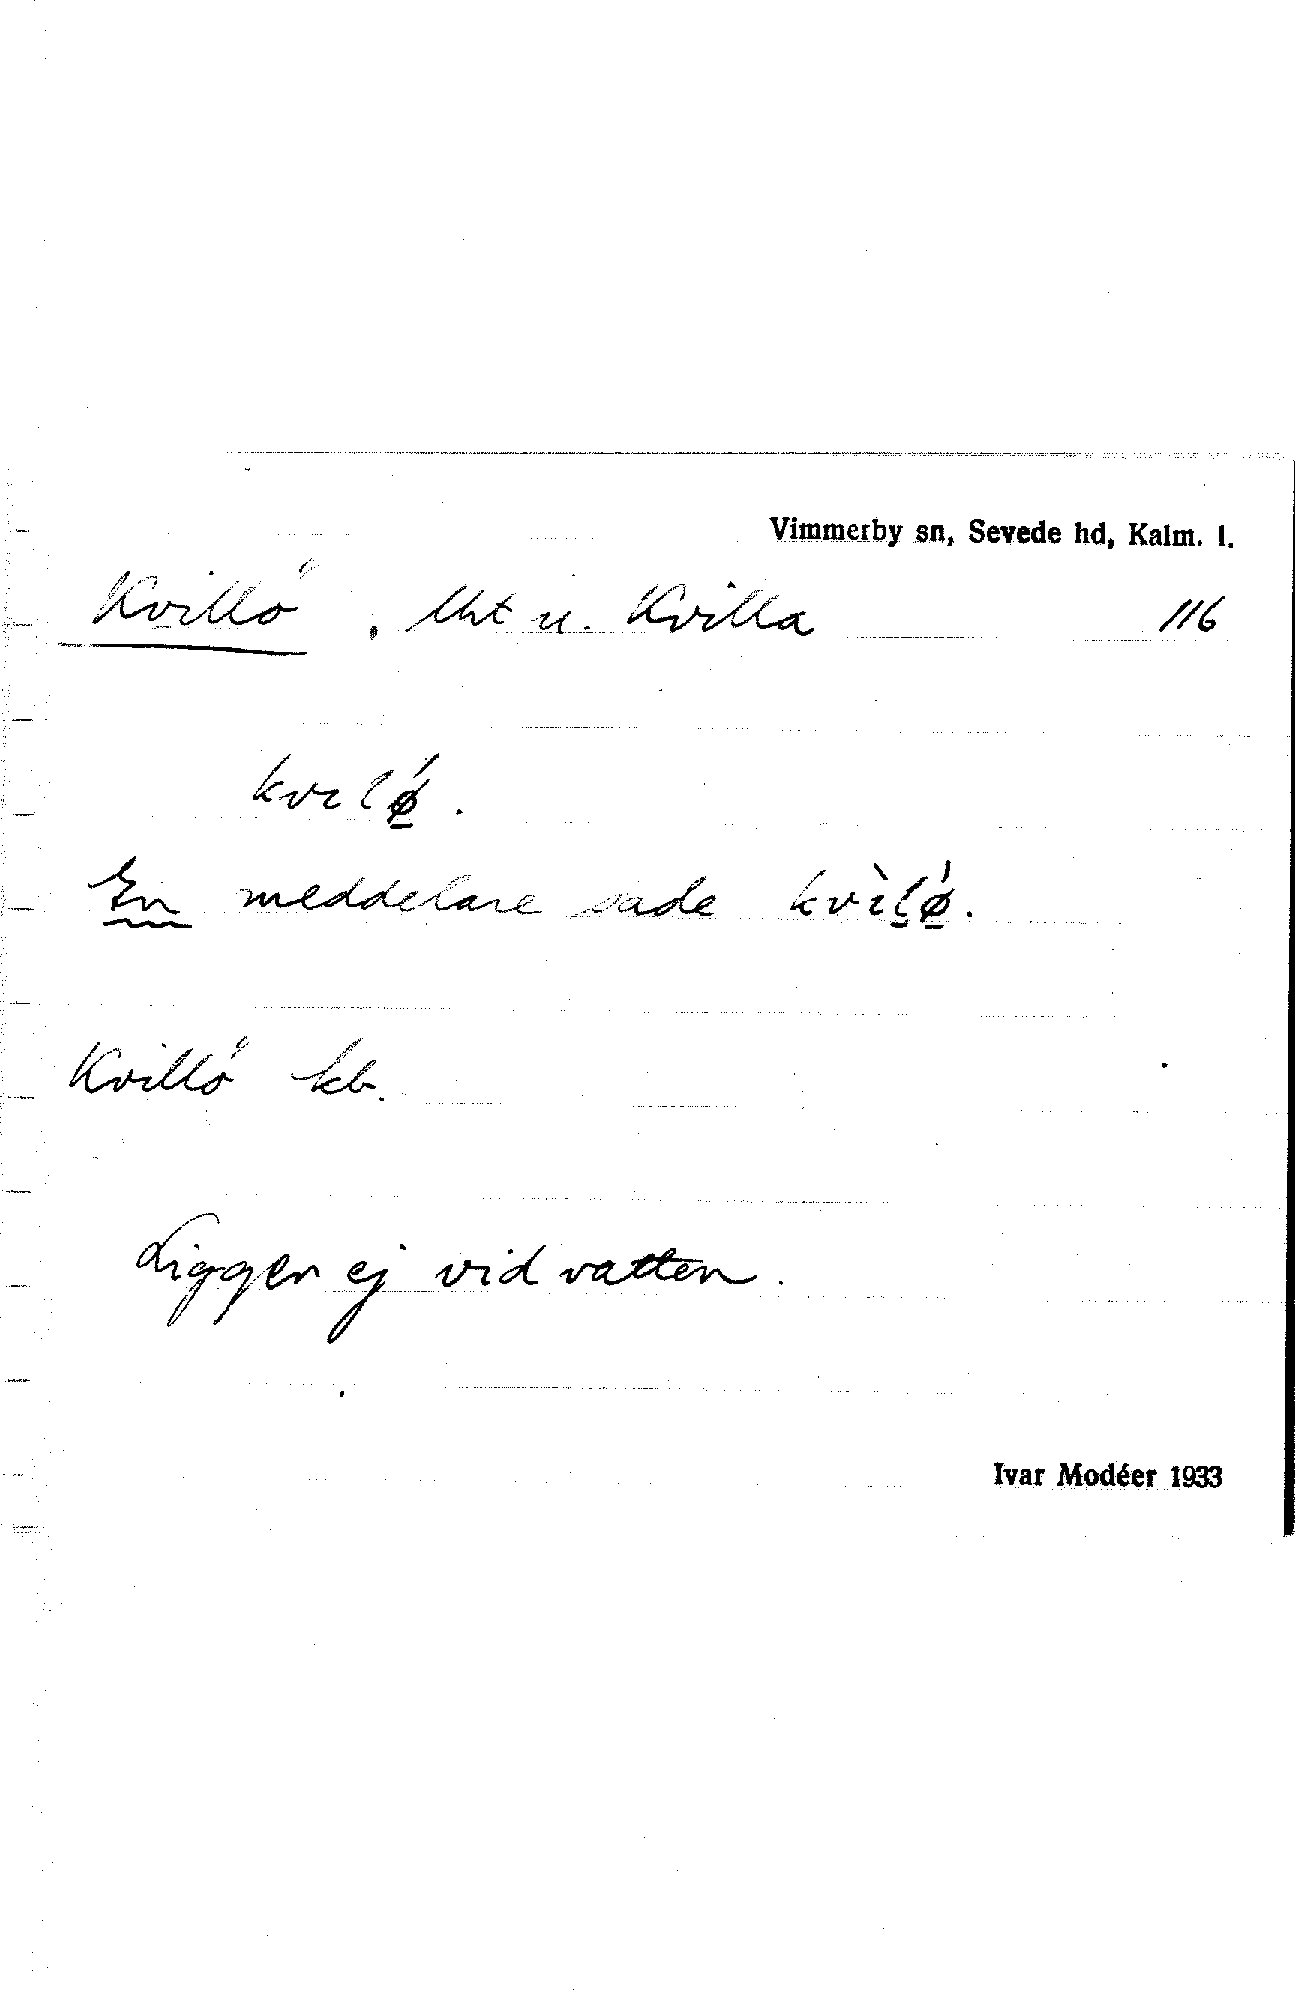 Vimmerby sn, Sevede hd, Kalm. l.
Kvillö, lht u. Kvilla 116
kvılǿ̲.
En meddelare sade kvı̀l̲ǿ̲.
Kvillö kb.
Ligger ej vid vatten.
Ivar Modéer 1933